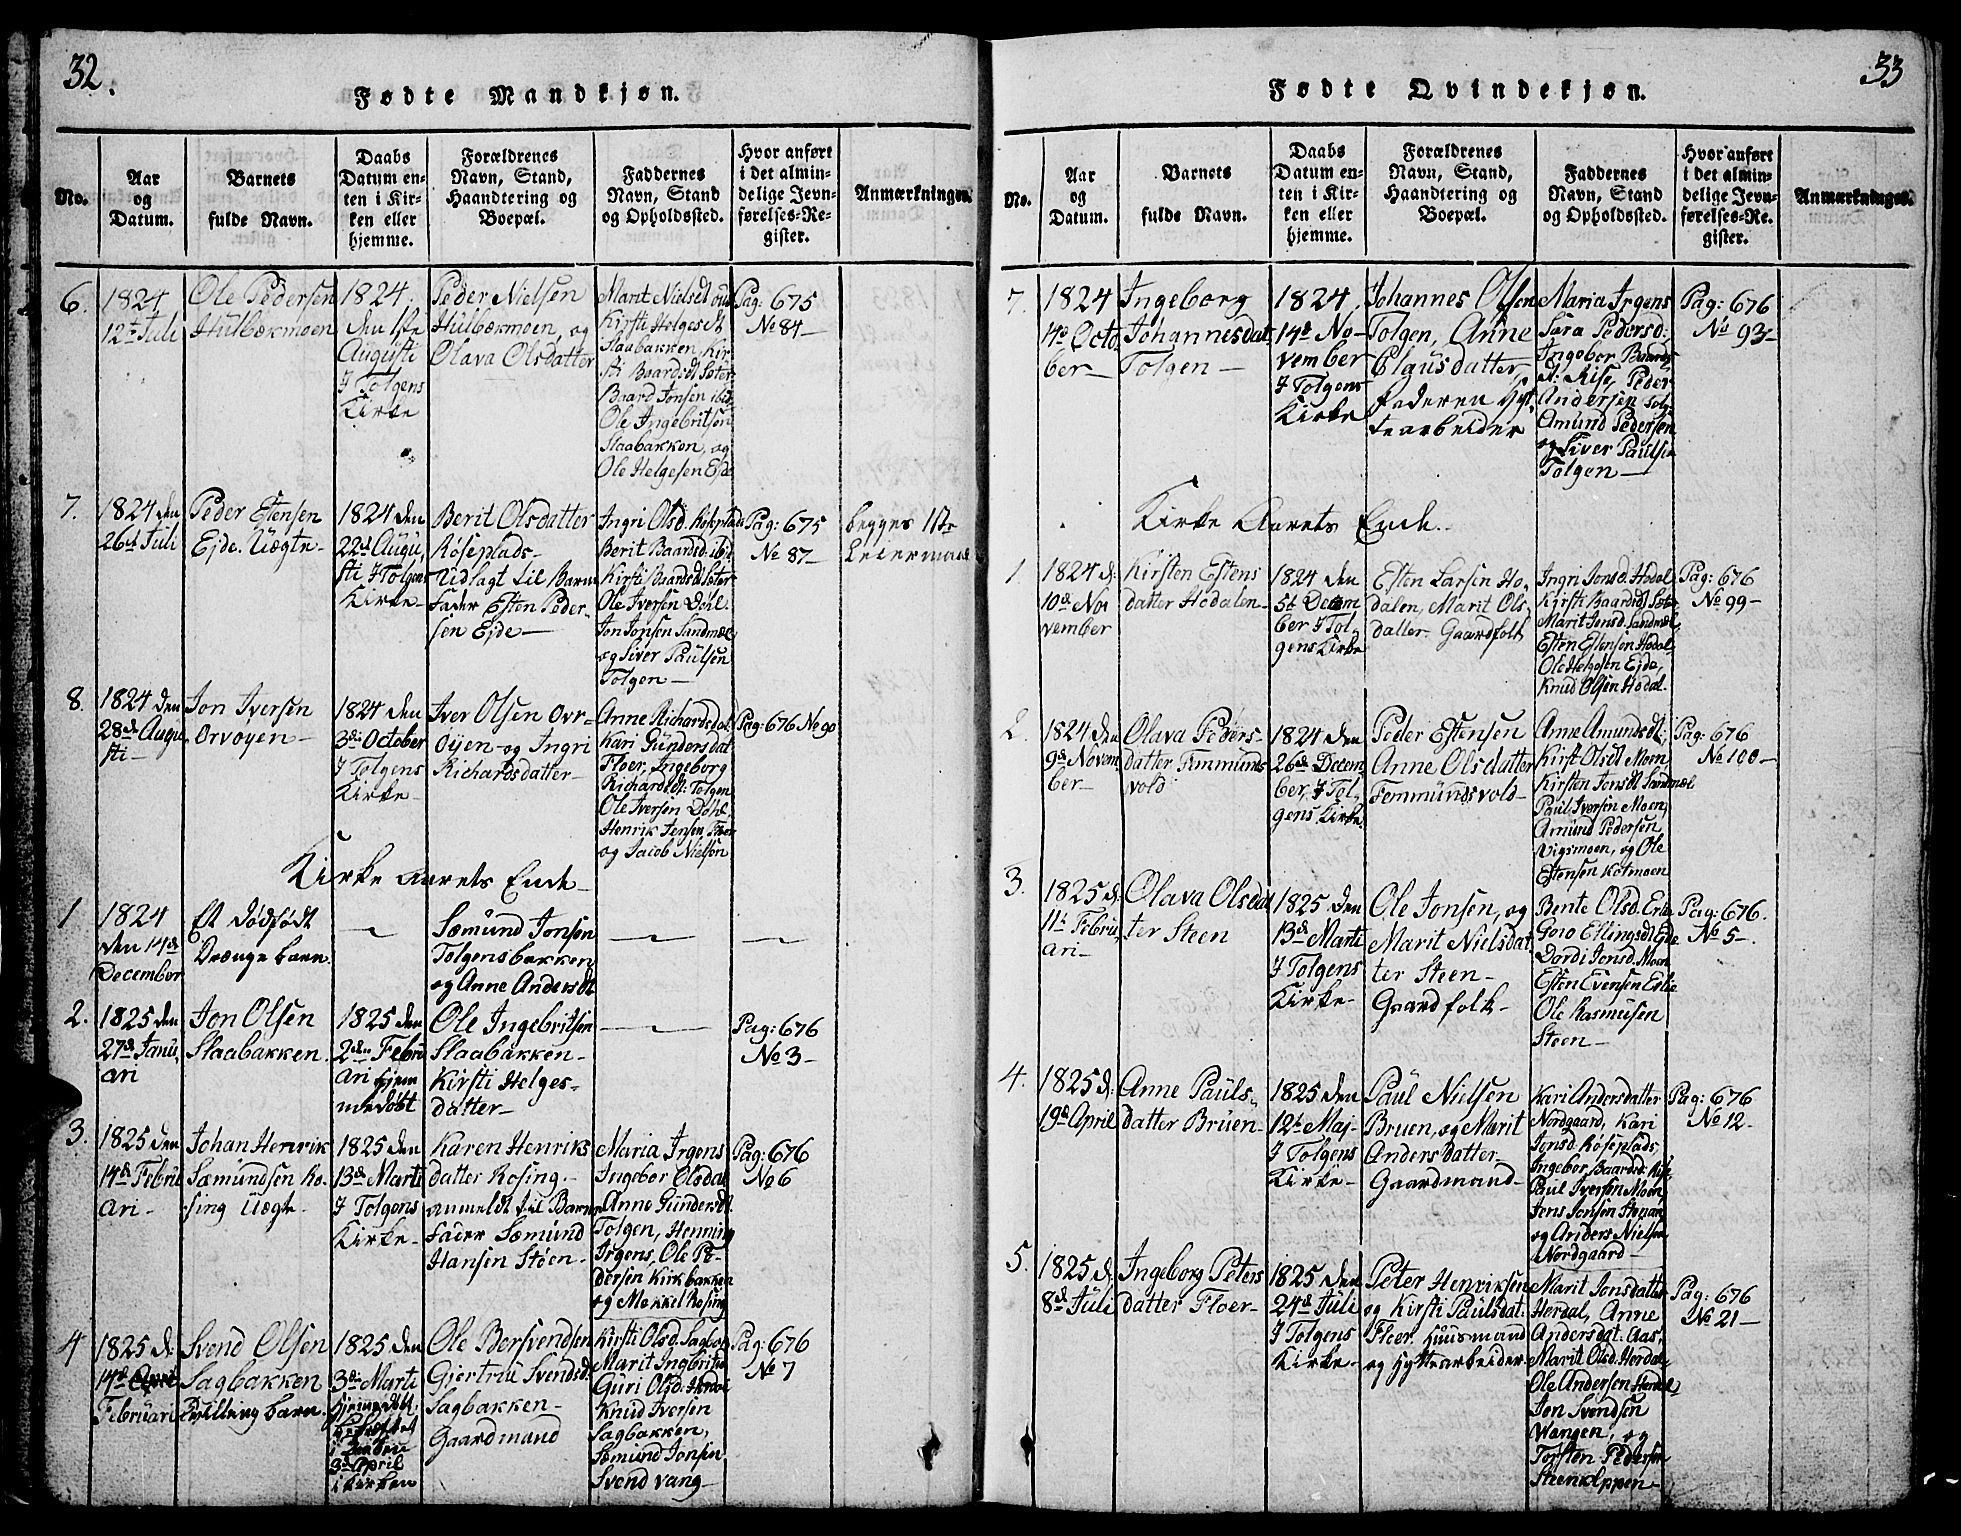 32.
Fødte Mandkjøn.
No.
Aar
og
Datum.
Barnets
fulde Navn.
Daabs
Datum en-
ten i Kir-
ken eller
hjemme.
Forældrenes
Navn, Stand,
Haandtering og
Boepæl.
Faddernes
Navn, Stand
og Opholdssted.
Hvor anført
i det almin-
delige Jevn-
førelses-Re-
gister.
Anmærkninger.
6.
1824
12te Juli
Ole Pedersen
Hulbækmoen
1824.
den 1ste
Augusti
I Tolgens
Kirke
Peder Nielsen
Hulbækmoen, og
Olava Olsdatter
Marit Nielsdt
Kirsti Holgesdt
Slaabakken, Kir-
sti Baardsdt Sæter
Baard Jonsen ibid
Ole Ingebritsen
Slaabakken, og
Ole Helgesen Ejde
Pag: 675
No 84-
7.
1824 den
26d Juli
Peder Estensen
Ejde. Uægte-
1824 den
22d Augu,
sti I Tolgens
Kirke-
Berit Olsdatter
Røseplads-
Udlagt til Barne
Fader Esten Peder-
sen Ejde-
Ingri Olsd. Røseplads
Berit Baardsd. ibid
Kirsti Baardsdt Sæter
Ole Iversen Dohl.
Jon Jonsen Sandmæl
og Siver Paulsen
Tolgen-
Pag: 675
No 87-
begges 1ste
Leiermaal
8.
1824 den
28de Augu
sti-
Jon Iversen
Orvoyen-
1824 den
3de October
I Tolgens
Kirke-
Iver Olsen Ovr-
Oijen og Ingri
Richardsdatter-
Anne Richardsdat
Kari Gundersdat
Floer, Ingeborg
Richardsdt: Tolgen
Ole Iversen Dohl,
Henrik Jensen, Floer
og Jacob Nielsen
Pag: 676 No 90
Kirke aarets Ende-
1
1824
den 14de
December
Et dødfødt
Drænge barn.
Sæmund Jonsen
Tolgensbakken
og Anne Andersdt
2.
1825 den
27d Janu,
ari
Jon Olsen
Slaabakken.
1825 den
2den Febru
ari hjem
medøbt
Ole Ingebritsen
Slaabakken-
Kirsti Helges-
datter-
Pag: 676
No 3-
3.
1825 den
14de Febru
ari-
Johan Henrik
Sæmundsen Ro-
sing Uægte-
1825 den
13de Marti
I Tolgens
Kirke-
Karen Henriks
datter Rosing.-
anmeldt til Barne
Fader Sæmund
Hansen Støen-
Maria Irgens
Ingebor Olsdat
Anne Gundersdt
Tolgen, Henning
Irgens, Ole Pe-
dersen Kirkbakken
og Mekkel Rosing
Pag: 676
No 6
4
1825 d:
14de
Februari
Svend Olsen
Sagbakken
Tvilling barn.
1825 den
3de Marti
3de April
i kirken
Ole Bersvendsen
Gjertru Svendsdt
Sagbakken-
Gaardmand
Kirsti Olsd. Sagbak
Marit Ingbritsd
Guri Olsd. Herdal
Knud Iversen
Sagbakken,
Sæmund Jonsen
Svend vang-
Pag: 676
No 7
33
Fødte Qvindekjøn.
No.
Aar
og
Datum.
Barnets
fulde Navn.
Daabs
Datum en-
ten i Kir-
ken eller
hjemme.
Forældrenes
Navn, Stand,
Haandtering og
Boepæl.
Faddernes
Navn, Stand
og Opholdssted.
Hvor anført
i det almin-
delige Jevn-
førelses-Re-
gister.
Anmærkninger.
7.
1824
14de Octo
ber-
Ingeborg
Johannesdat
Tolgen-
1824
14de No-
vember
I Tolgens
Kirke
Johannes Olsen
Tolgen, Anne
Clausdatter,
Faderen Hyt-
tearbeider
Maria Irgens
Sara Pedersd:
Ingebor Baards
d: Rise, Peder
Andersen Tolg:
Amund Pedersen
og Siver Paulsen
Tolgen-
Pag: 676
No 93-
Kirke Aarets Ende.-
1.
1824 d:
10de No-
vember
Kirsten Estens
datter Hodalen-
1824 den
5t Decem
ber I Tol,
gens Kirke
Esten Larsen Ho-
dalen, Marit Ols-
datter. Gaardfolk
Ingri Jonsd. Hodal
Kirsti Baardsdt Sæter
Marit Jonsd. Sandmæl
Esten Estensen Hodal
Ole Helgesen Ejde,
Knud Olsen Hodal-
Pag: 676
No 99-
2.
1824 den
9de Novem
ber-
Olava Peders-
datter Femmunds
vold
1824 den
26de Decem-
ber, I Tol,
gens Kirke.
Peder Estensen
Anne Olsdatter
Femmundsvold-
Anne Amundsdt,
Kirst Olsdt Moen
Kirsten Jonsdt Sandmæl
Paul Iversen Moen,
Amund Pedersen
Vigsmoen, og Ole
Estensen Kotmoen
Pag: 676
No 100-
3.
1825 d:
11te Febru,
ari-
Olava Olsdat
ter Steen
1825 den
13de Marti
I Tolgens
Kirke-
Ole Jonsen, og
Marit Nielsdat
ter Steen-
Gaardfolk-
Bente Olsd. Erlie
Goro Ellingsdt Ejde
Dordi Jonsd. Moen
Esten Evensen Erlie
Ole Rasmusen
Steen-
Pag: 676.
No 5-.
4.
1825 d:
19de April
Anne Pauls-
datter Bruen-
1825 den
12te Maj-
I Tolgens
Kirke-
Paul Nielsen
Bruen, og Marit
Andersdatter-
Gaardmand-
Kari Andersdatter
Nordgaard, Kari
Jonsd. Røseplads,
Ingebor Baardsd. Rise,
Paul Iversen Moen,
Jens Jonsen
og Anders Nielsen
Nordgaard-
Pag: 676
No 12-
5.
1825 d:
8de Juli
Ingeborg Peters
datter Floer-
1825 den
24de Juli
I Tolgens
Kirke-
Peter Henriksen
og Kirsti Paulsdat.
Floer. Huusmand
og Hyttearbeider
Marit Jonsdatter
Herdal, Anne
Andersdat. Aas,
Marit Olsd. Herdal,
Ole Andersen Herdal,
Jon Svendsen
Wangen, og
Torsten Pedersen
Steenkleppen-
Pag: 676
No 21-